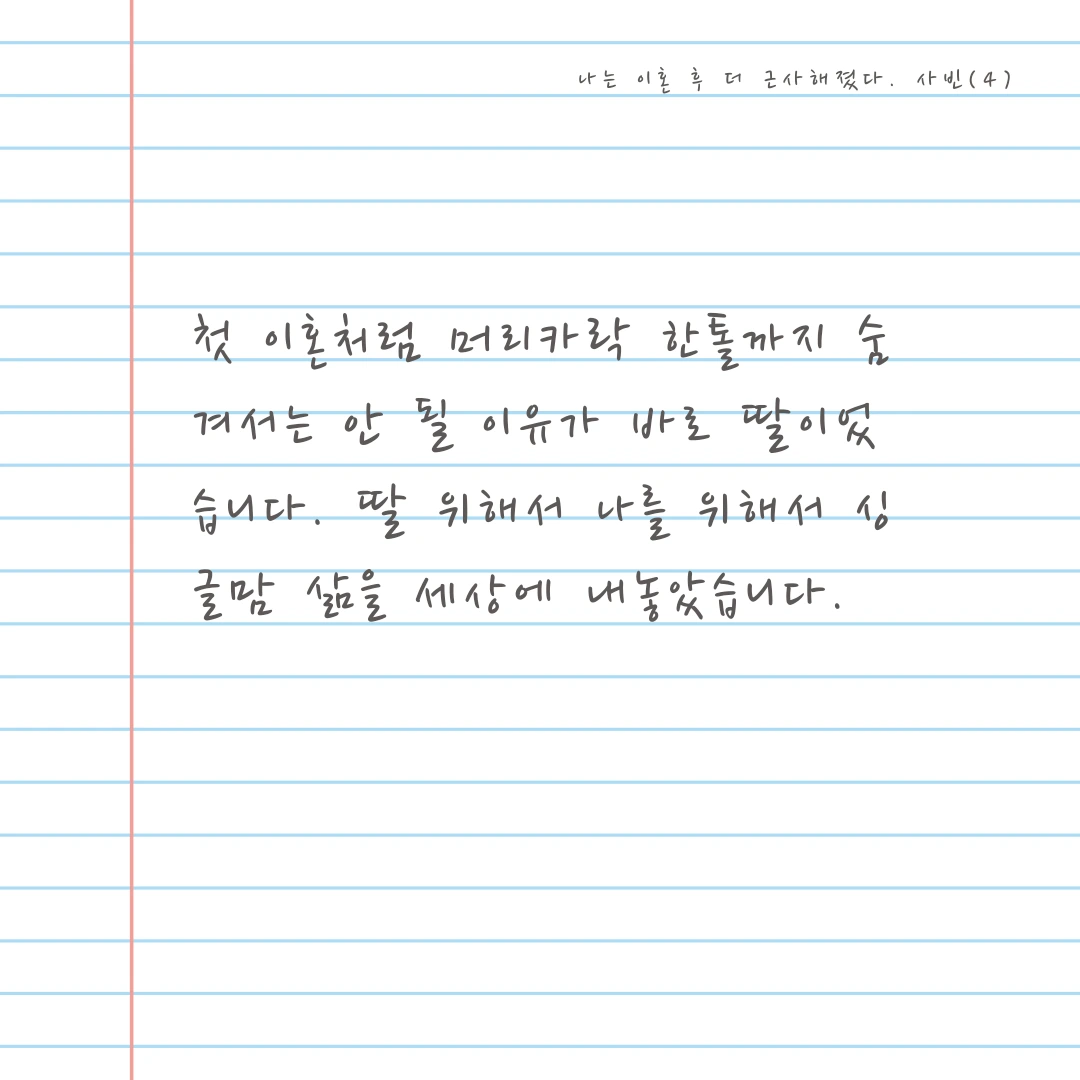 나는 이혼 후 더 근사해졌다. 사빈(4)
첫 이혼처럼 머리카락 한톨까지 숨
겨서는 안 될 이유가 바로 딸이었
습니다. 딸 위해서 나를 위해서 싱
글맘 삶을 세상에 내놓았습니다.